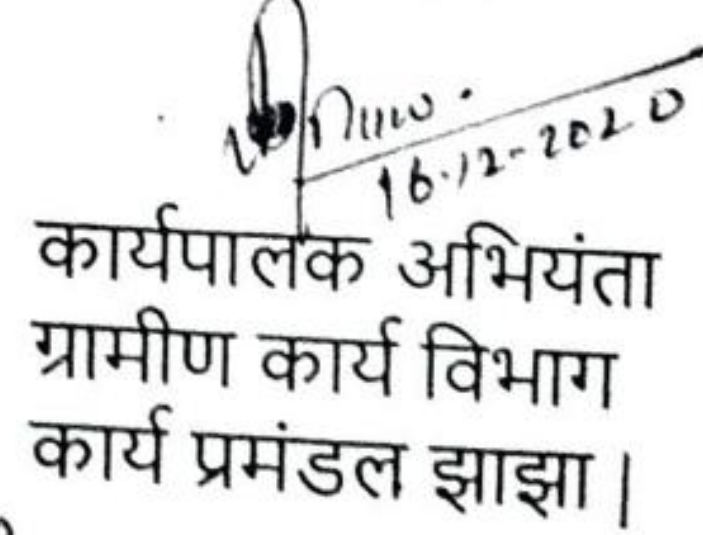 16.12-2020
कार्यपालक अभियंता
ग्रामीण कार्य विभाग
कार्य प्रमंडल झाझा |